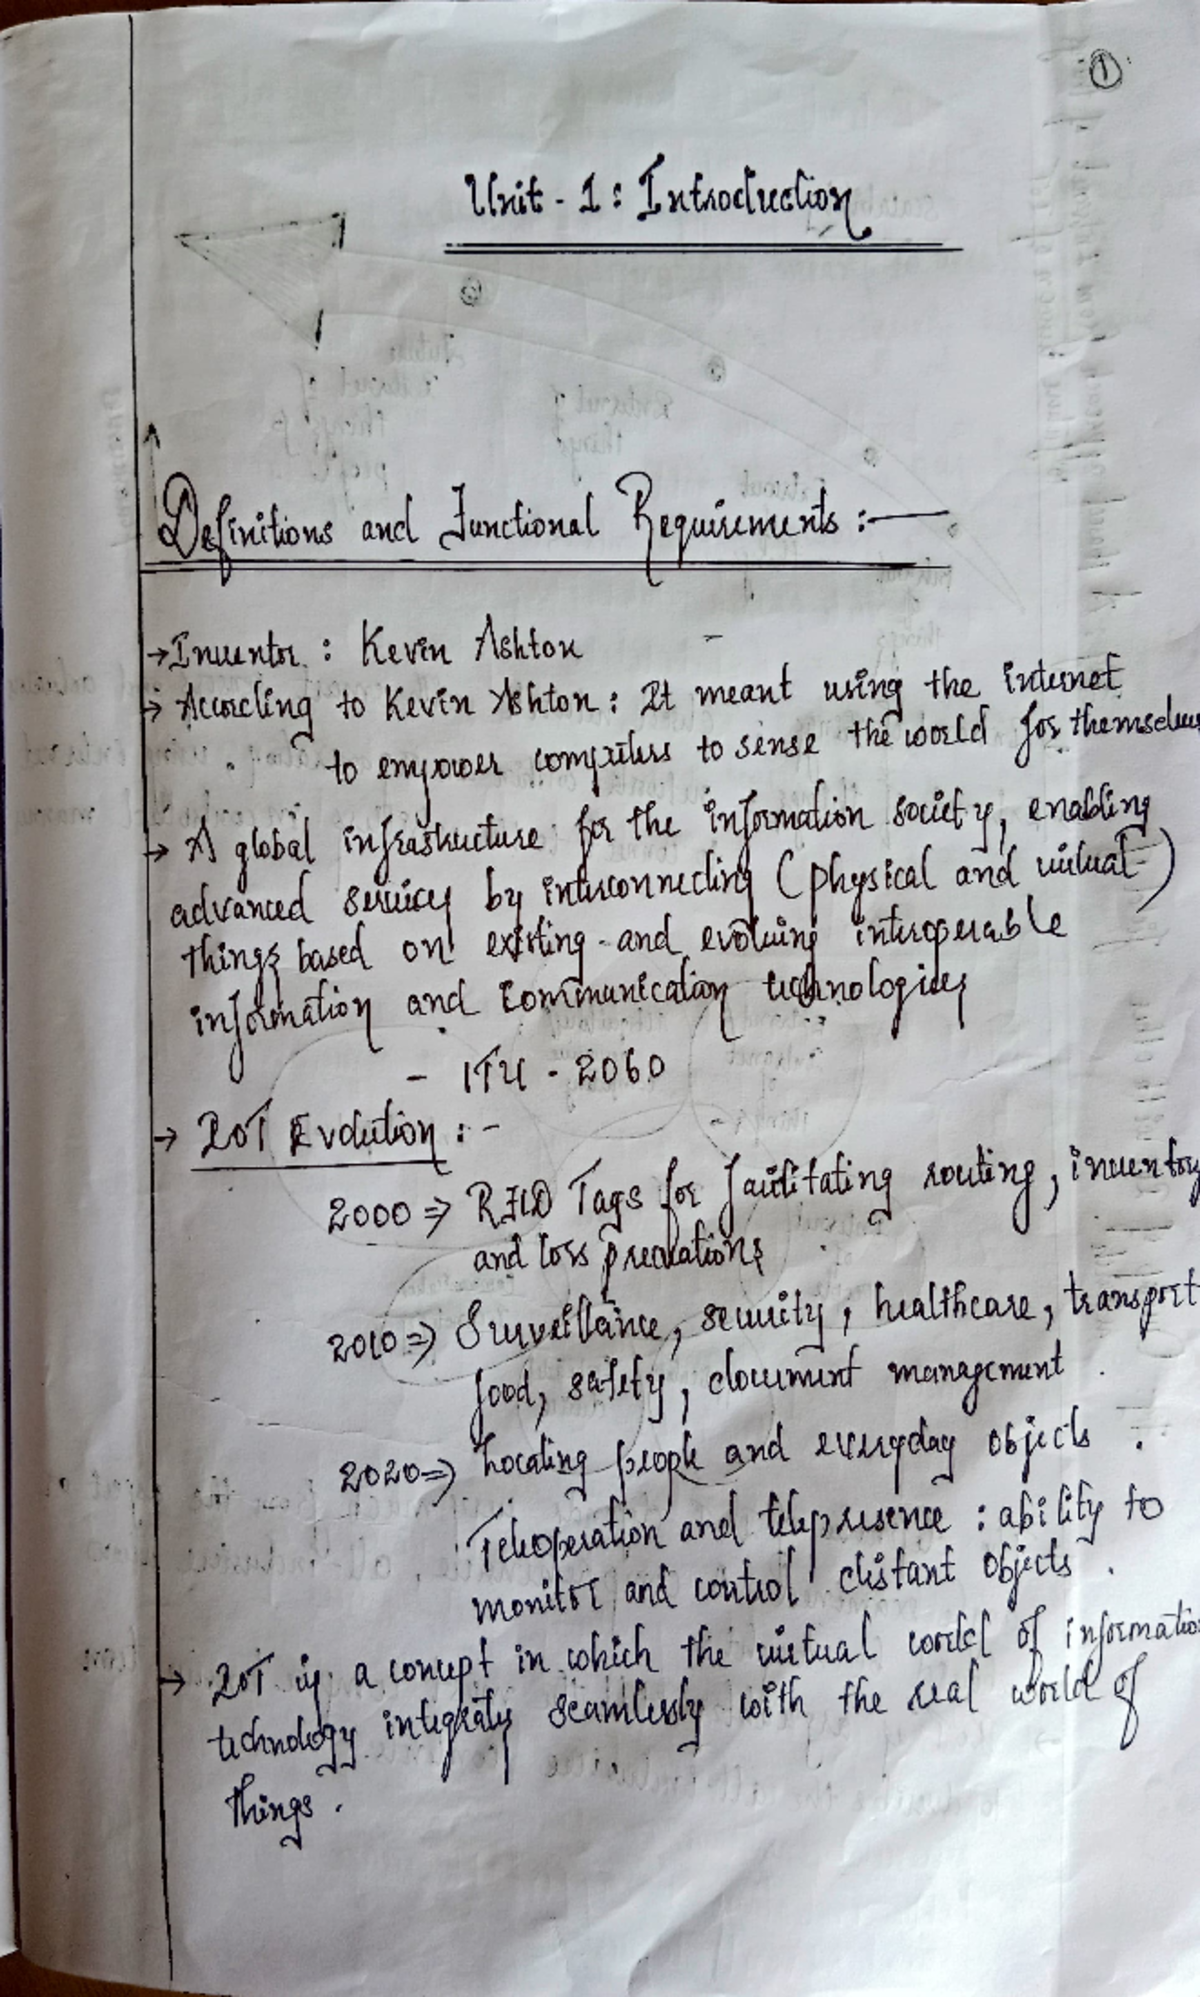 1
Unit - 1 : Introduction
Definitions and Functional Requirements :-
→ Inventor : Kevin Ashton
→ According to Kevin Ashton : It meant using the internet
to empower computers to sense the world for themselves
→ A global infrastructure for the information society, enabling
advanced services by interconnecting (physical and virtual)
things based on existing and evolving interoperable
information and communication technologies
- ITU - 2060
→ IoT Evolution : -
2000 ⇒ RFID Tags for facilitating routing, inventory
and loss prevations
2010 ⇒ Surveillance, security, healthcare, transport
food, safety, document management
2020 ⇒ Locating people and everyday objects .
Teleoperation and telepresence : ability to
monitor and control distant objects .
→ IoT is a concept in which the virtual world of information
technology integrates seamlessly with the real world of
things .